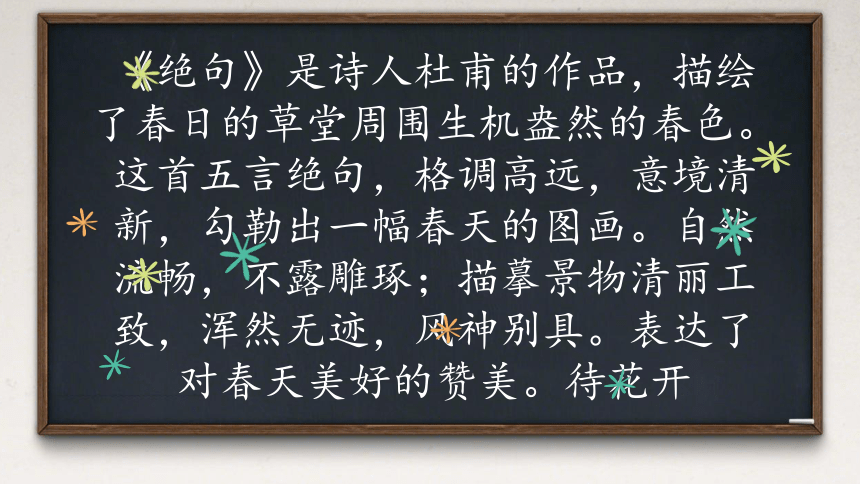 《绝句》是诗人杜甫的作品，描绘
了春日的草堂周围生机盎然的春色。
这首五言绝句，格调高远，意境清
新，勾勒出一幅春天的图画。自然
流畅，不露雕琢；描摹景物清丽工
致，浑然无迹，风神别具。表达了
对春天美好的赞美。待花开